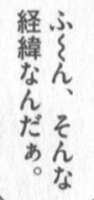 ふ〜ん、そんな
経緯なんだぁ。